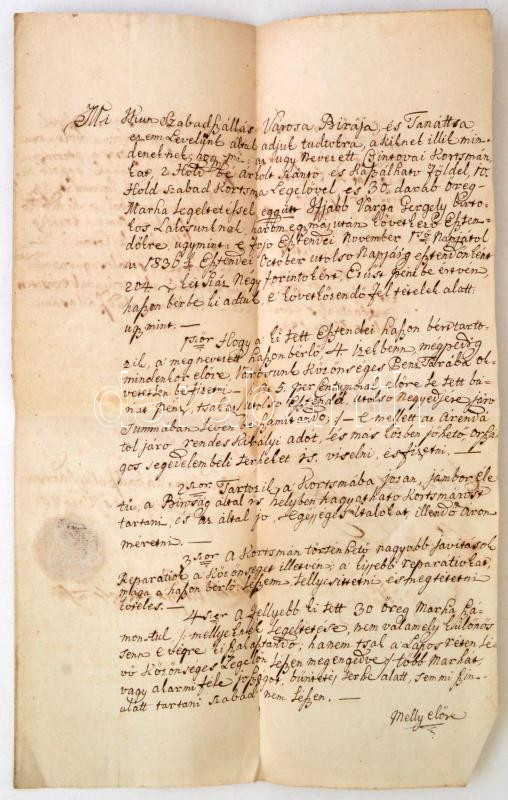 Mi Kiun Szabad Szállás Városa Birája, és Tanáttsa
ezem Levelünk által adjuk tudtokra, a kiknek illik min-
deneknek, hogy mi az ugy nevezett Bintovai Kortsmán-
kat, 2 Hold be árkolt Szántó, és Kapálható Földel, 10.
Hold Szabad Kortsma Legelővel, és 30. darab öreg-
Marha legeltetéssel eggütt Ifjabb Varga Gergely birto-
kos Lakosunknak, három egymás után következő Eszten-
dőkre, ugymint: e folyó Esztendei November 1ső Napjától
az 1836k Esztendei October utolsó Napjáig esztendőnként
204 az az két Száz Négy forintokért, Ezüst pénzbe értven,
haszon bérbe ki adtuk, e következendő fel tételek alatt:
ugymint. —
1ször Hogy a ki tett Esztendei haszon bért tarto-
zik, a megnevezett haszonbérlő 4 izekbenn, megpedig
mindenkor előre Városunk Közönséges Cassájába ol-
vasetlen be fizetni — az 5. per Centummal előre le tett bá-
nat pénz, tsak az utolsó Esztendő utolsó Negyedjére járó
Summában levén bé számitandó; — e mellett az Arenda
tol járó rendes Királyi adót, és más közben jöhető Orszá-
gos segedelembeli terheket is, viselni, és fizetni. —
2szor Tartozik a Kortsmába józan, jámbor éle
tü, a Biróság által is helyben hagyatható Kortsmárost
tartani, és az által jó, egésséges italokat, illendő áron
méretni. —
3szor A Kortsmán történhető nagyobb javitások
Reparatiók a Közönséget illetvén; a kisebb reparatiókat,
maga a haszon bérlő lészen tellyesittetni, és megtétetni
köteles. —
4szer A fellyebb ki tett 30 öreg Marha szá-
montul /: mellyeknek legeltetése, nem valamely külonös
senn e végre ki szakaztandó, hanem tsak a Lapos réten lé-
vő Közönséges Legelőn lészen megengedve :/ több Marhát,
vagy akarmi féle jószágot, büntetés terhe alatt, semmi szin-
alatt tartani szabad nem lészen. —
Melly előre